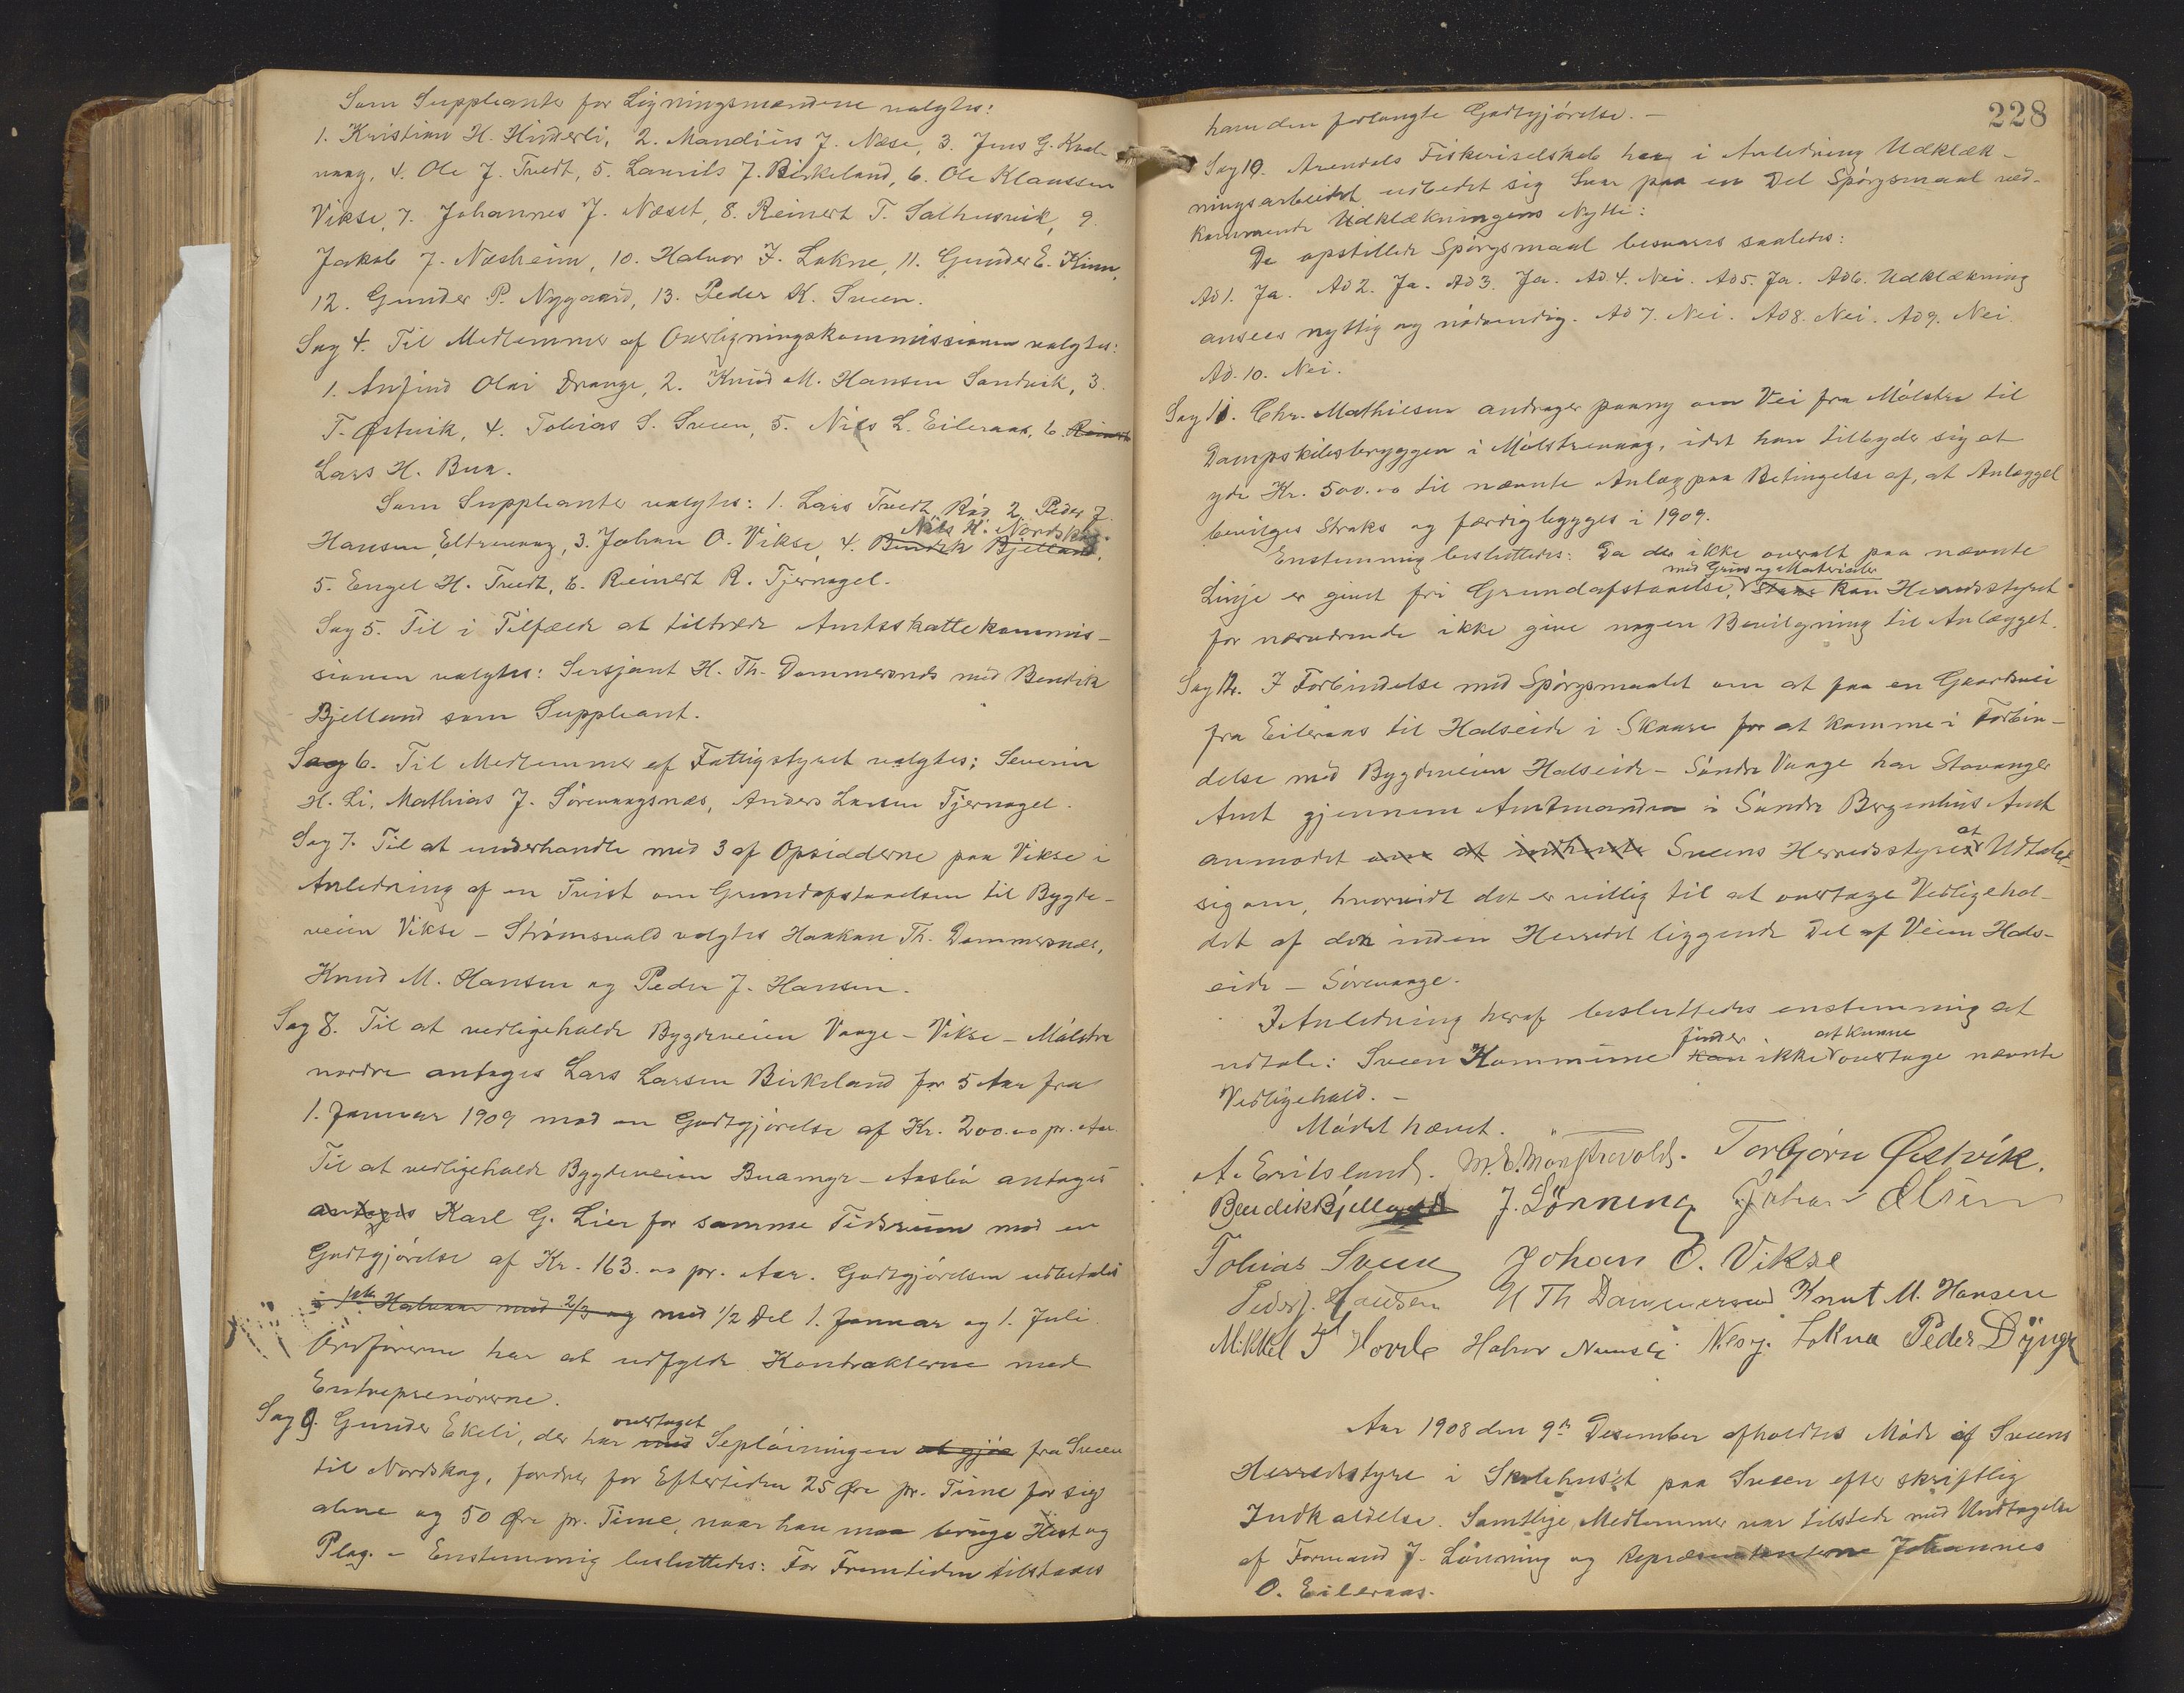 Som Suppleanter for Ligningsmændene valgtes:
1. Kristian H. Hinderli, 2. Mandius J. Næse, 3. Jens G. Kval-
vaag, 4. Ole J. Tvedt, 5. Laurits J. Birkeland, 6. Ole Klaussen
Vikse, 7. Johannes J. Næset, 8. Reinert T. Salhusvik, 9.
Jakob J. Næsheim, 10. Halvor F. Lokne, 11. Gunder E. Kinn,
12. Gunder P. Nygaard, 13. Peder K. Sveen.
Sag 4. Til Medlemmer af Overligningskommissionen valgtes:
1. Anfind Olai Drange, 2. Knud M. Hansen Sandvik, 3.
T. Østvik, 4. Tobias S. Sveen, 5. Nils L. Eileraas, 6. Reinert
Lars H. Bua.
Som Suppleanter valgtes: 1. Lars Tvedt Råd 2. Peder J.
Hansen, Eltrevaag, 3. Johan O. Vikse, 4. Bendik Bjelland, Nils K. Nordskog.
5. Engel H. Tvedt, 6. Reinert R. Tjernagel.
Sag 5. Til i Tilfælde at tiltræde Amtsskattekommis-
sionen valgtes: Sersjant H. Th. Dommersnes med Bendik
Bjelland som Suppleant.
Sag 6. Til Medlemmer af Fattigstyret valgtes: Severin
H. Li, Mathias J. Sørevaagsnæs, Anders Larsen Tjernagel.
Sag 7. Til at underhandle med 3 af Opsidderne paa Vikse i
Anledning af en Tvist om Grundafstaaelsen til Bygde-
veien Vikse - Strømsvold valgtes Haakon Th. Dommersnæs,
Knud M. Hansen og Peder J. Hansen.
Sag 8. Til at vedligeholde Bygdeveien Vaage - Vikse - Målstre
nordre antages Lars Larsen Birkeland for 5 Aar fra
1. Januar 1909 mod en Godtgjørelse af Kr. 200.00 pr. Aar.
Til at vedligeholde Bygdeveien Buamyr - Aasbu antages
antages Karl G. Lier for samme Tidsrum mod en
Godtgjørelse af Kr. 163.00 pr. Aar. Godtgjørelsen udbetales
i 1ste Halvaar med 2/3 og med 1/2 Del 1. Januar og 1. Juli.
Ordføreren har at udfylde Kontrakterne med
Entreprenørerne.
Sag 9. Gunder Ekeli, der har med overtaget Sepløiningen at gjøre fra Sveen
til Nordskog, fordrer for Eftertiden 25 Øre pr. Time for sig
alene og 50 Øre pr. Time, naar han maa bruge Hest og
Plog. - Enstemmig besluttedes: For Fremtiden tilstaaes
228
ham den forlangte Godtgjørelse. -
Sag 10. Arendals Fiskeriselskab har i Anledning Udklæk-
ningsarbeidet udbedt sig Svar paa en Del Spørgsmaal ved-
kommende Udklækningens Nytte:
De opstillede Spørgsmaal besvares saaledes:
Ad 1. Ja. Ad 2. Ja. Ad 3. Ja. Ad. 4. Nei. Ad 5. Ja. Ad 6. Udklækning
ansees nyttig og nødvendig. Ad 7. Nei. Ad 8. Nei. Ad 9. Nei.
Ad. 10. Nei.
Sag 11. Chr. Mathiesen andrager paany om Vei fra Målstre til
Dampskibsbryggen i Målstrevaag, idet han tilbyder sig at
yde Kr. 500.00 til nævnte Anlæg paa Betingelse af, at Anlægget
bevilges straks og færdigbygges i 1909.
Enstemmig besluttedes: Da der ikke overalt paa nævnte
Linje er givet fri Grundafstaaelse, med Grus og Materialer kan Herredsstyret
for nærværende ikke give nogen Bevilgning til Anlægget.
Sag 12. I Forbindelse med Spørgsmaalet om at faa en Gaardsvei
fra Eileraas til Halseide i Skaare for at komme i Forbin-
delse med Bygdeveien Halseide - Søndre Vaage har Stavanger
Amt gjennem Amtmanden i Søndre Bergenhus Amt
anmodet om at indhente Sveens Herredsstyre at Udtale
sig om, hvorvidt det er villig til at overtage Vedligehol-
det af den inden Herredet liggende Del af Veien Hals-
eide - Sørevaage.
I Anledning heraf besluttedes enstemmig at
udtale: Sveen Kommune kan finder ikke at kunne overtage nævnte
Vedligehold. -
Mødet hævet.
A. Erilsland. Torbjørn Østvik.
Bendik Bjelland J. Lønning Johan Olsen
Tobias Sveen Johan O. Vikse
Peder J. Hansen H Th Dammersnes Knut M. Hansen
Mikkel T Hovda Halvor Lokna Peder Dynge
Aar 1908 den 9de Desember afholdtes Møde af Sveens
Herredsstyre i Skolehuset paa Sveen efter skriftlig
Indkaldelse. Samtlige Medlemmer var tilstede med Undtagelse
af Formand J. Lønning og Repræsentanterne Johannes
O. Eileraas.